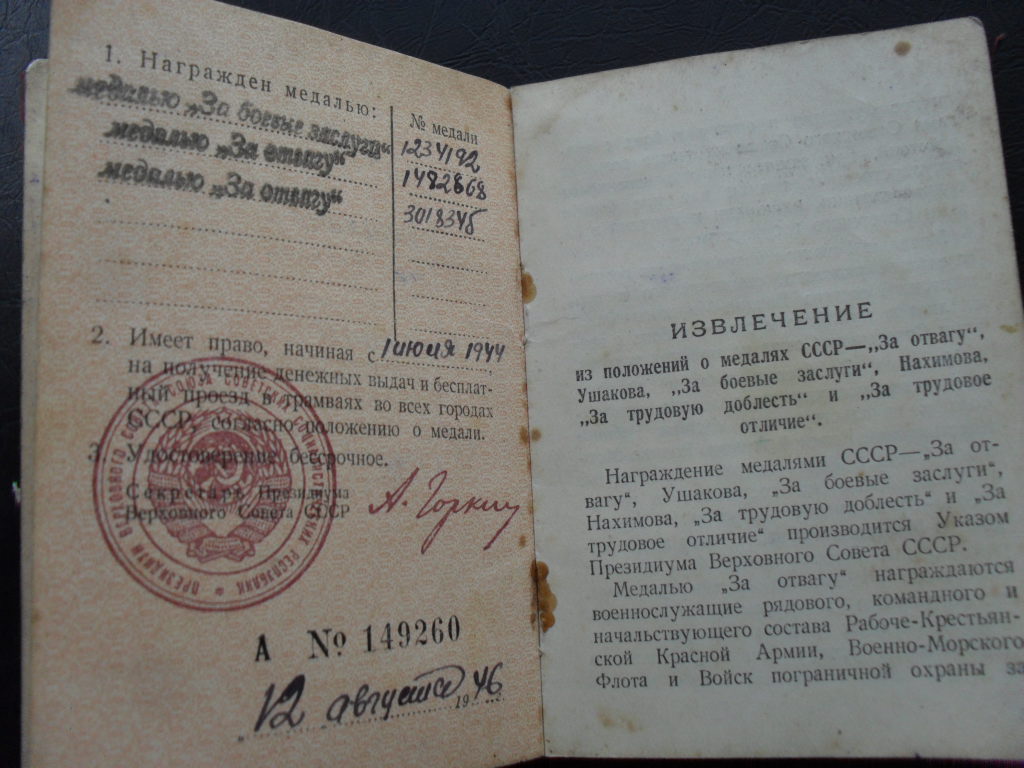 1. Награжден медалью:
№ медали
медалью „За боевые заслуги“ 1234192
медалью „За отвагу“ 1482868
медалью „За отвагу“ 3018345
2. Имеет право, начиная с 1 июля 1944
на получение денежных выдач и бесплат-
ный проезд в трамваях во всех городах
СССР, согласно положению о медали.
3. Удостоверение бессрочное.
Секретарь Президиума
Верховного Совета СССР
А. Горкин
ПРЕЗИДИУМ ВЕРХОВНОГО СОВЕТА СОЮЗА СОВЕТСКИХ СОЦИАЛИСТИЧЕСКИХ РЕСПУБЛИК
А № 149260
12 августа 1946
ИЗВЛЕЧЕНИЕ
из положений о медалях СССР—„За отвагу“,
Ушакова, „За боевые заслуги“, Нахимова,
„За трудовую доблесть“ и „За трудовое
отличие“.
Награждение медалями СССР—„За от-
вагу“, Ушакова, „За боевые заслуги“,
Нахимова, „За трудовую доблесть“ и „За
трудовое отличие“ производится Указом
Президиума Верховного Совета СССР.
Медалью „За отвагу“ награждаются
военнослужащие рядового, командного и
начальствующего состава Рабоче-Крестьян-
ской Красной Армии, Военно-Морского
Флота и Войск пограничной охраны за